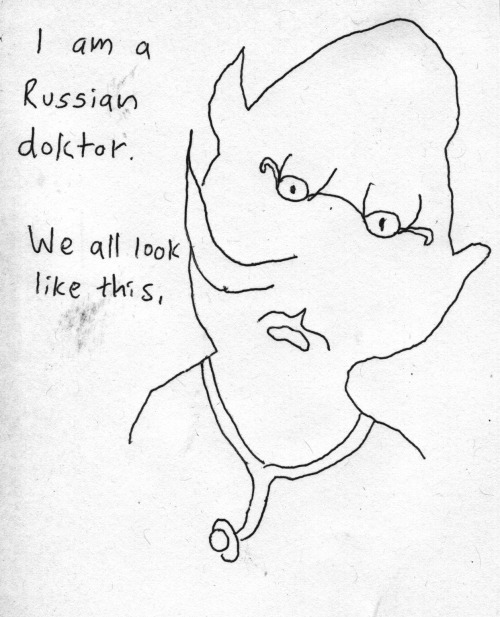 I am a
Russian
doktor.
We all look
like this.